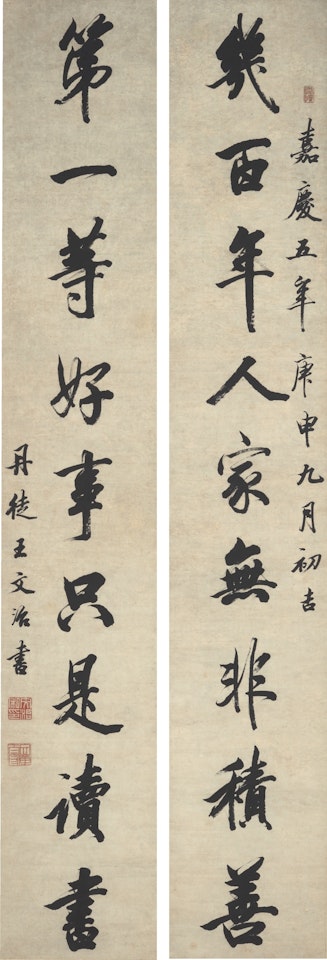 嘉慶五年庚申九月初吉
幾百年人家無非積善
第一等好事只是讀書
丹徒王文治書